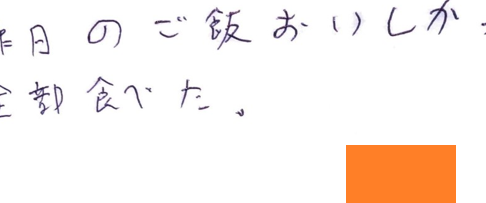 昨日のご飯おいしかっ
全部食べた。